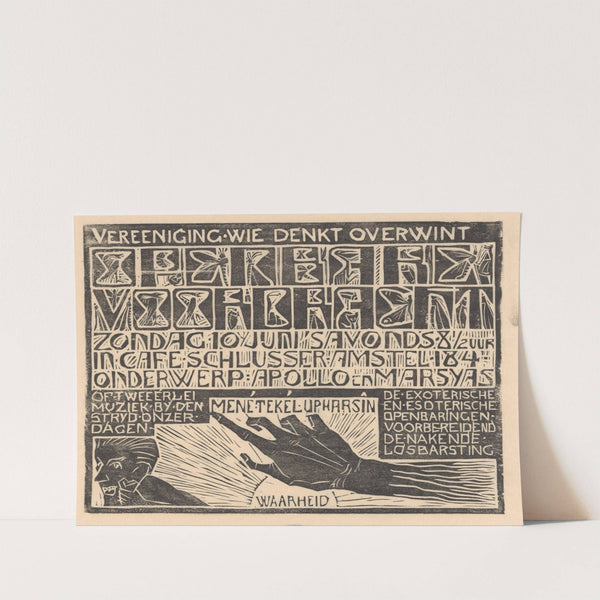 VEREENIGING·WIE DENKT OVERWINT
OPENBARE
VOORDRACHT
ZONDAG·10·JUNI·SAVONDS·8½UUR
IN·CAFE·SCHLUSSER·AMSTEL·184·
ONDERWERP·APOLLO en MARSYAS
OF·TWEEERLEI
MUZIEK·BY·DEN
STRYD·ONZER·
DAGEN·
MENÉ·TEKEL·UPHARSIN
DE·EXOTERISCHE
EN·ESOTERISCHE
OPENBARINGEN·
VOORBEREIDEND
DE·NAKENDE·
LOSBARSTING
WAARHEID